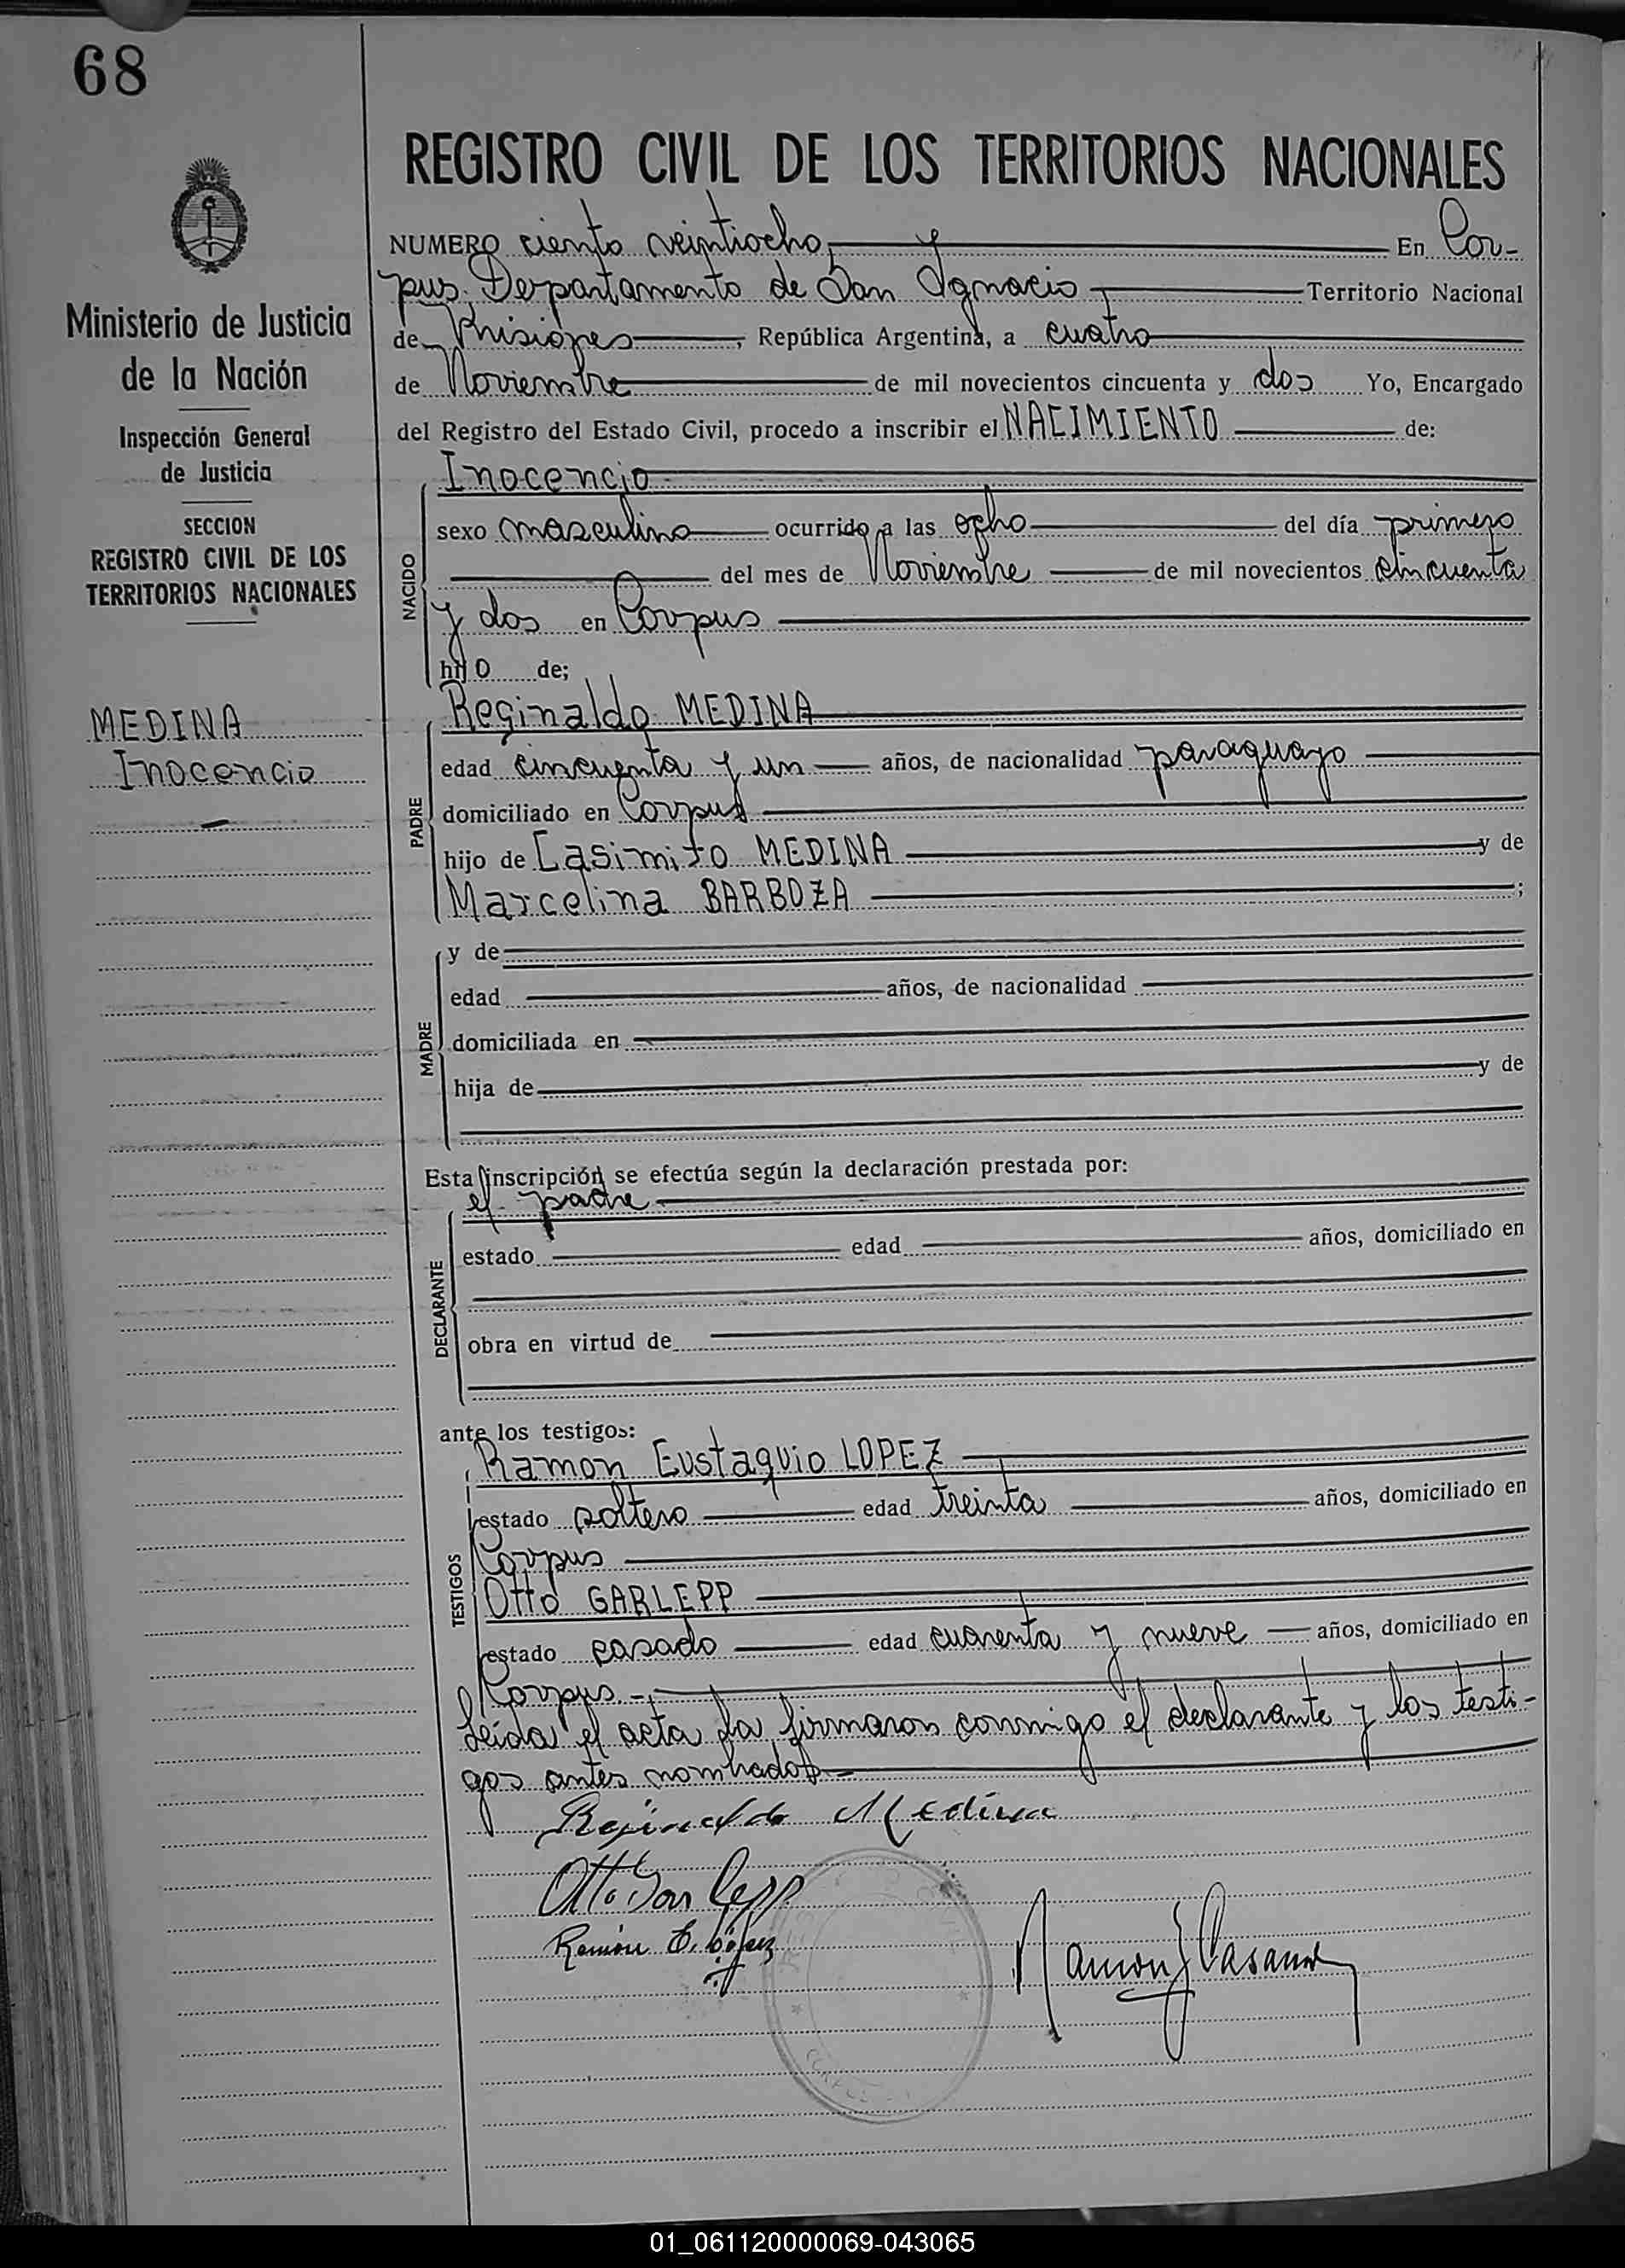 68
REGISTRO CIVIL DE LOS TERRITORIOS NACIONALES
Ministerio de Justicia
de la Nación
Inspección General
de Justicia
SECCION
REGISTRO CIVIL DE LOS
TERRITORIOS NACIONALES
MEDINA
Inocencio
NUMERO ciento veintiocho, En Cor-
pus, Departamento de San Ignacio, Territorio Nacional
de Misiones, República Argentina, a cuatro
de Noviembre de mil novecientos cincuenta y dos Yo, Encargado
del Registro del Estado Civil, procedo a inscribir el NACIMIENTO de:
NACIDO
Inocencio
sexo masculino ocurrido a las ocho del día primero
del mes de Noviembre de mil novecientos cincuenta
y dos en Corpus
hijo de;
PADRE
Reginaldo MEDINA
edad cincuenta y un años, de nacionalidad paraguayo
domiciliado en Corpus
hijo de Casimiro MEDINA y de
Marcelina BARBOZA ;
MADRE
y de
edad años, de nacionalidad
domiciliada en
hija de y de
Esta inscripción se efectúa según la declaración prestada por:
DECLARANTE
el padre
estado edad años, domiciliado en
obra en virtud de
ante los testigos:
TESTIGOS
Ramon Eustaquio LOPEZ
estado soltero edad treinta años, domiciliado en
Corpus
Otto GARLEPP
estado casado edad cuarenta y nueve años, domiciliado en
Corpus.-
Leida el acta la firmaron conmigo el declarante y los testi-
gos antes nombrados
Rejinaldo Medina
Otto Garlepp
Ramón E. López
Ramon
01_061120000069-043065